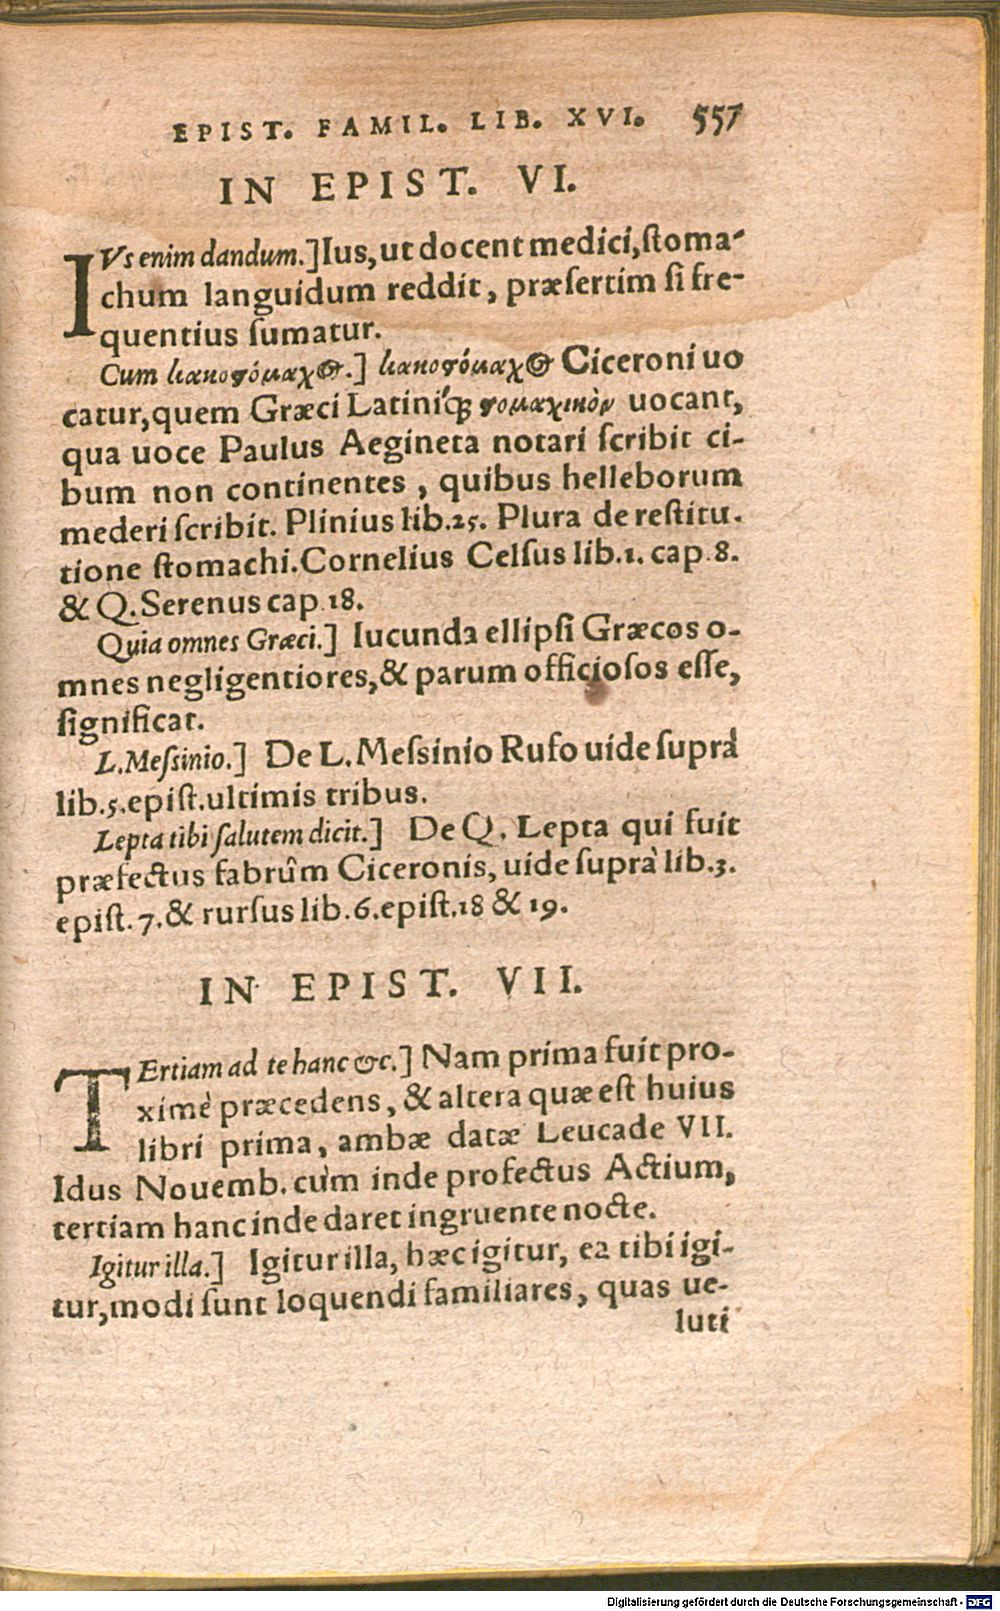 EPIST. FAMIL. LIB. XVI. 557
IN EPIST. VI.
IVs enim dandum.] Ius, ut docent medici, ſtoma-
chum languidum reddit, præſertim ſi fre-
quentius ſumatur.
Cum κακοϛόμαχος.] κακοϛόμαχος Ciceroni uo
catur, quem Græci Latiniq́ꝫ ϛομαχικὸν uocant,
qua uoce Paulus Aegineta notari ſcribit ci-
bum non continentes, quibus helleborum
mederi ſcribit. Plinius lib.25. Plura de reſtitu.
tione ſtomachi. Cornelius Celſus lib.1. cap.8.
& Q. Serenus cap.18.
Quia omnes Græci.] Iucunda ellipſi Græcos o-
mnes negligentiores, & parum officioſos eſſe,
ſignificat.
L. Meſsinio.] De L. Meſsinio Rufo uide ſuprà
lib.5. epiſt. ultimis tribus.
Lepta tibi ſalutem dicit.] De Q. Lepta qui fuit
præfectus fabrûm Ciceronis, uide ſuprà lib.3.
epiſt. 7. & rurſus lib.6. epiſt.18 & 19.
IN EPIST. VII.
TErtiam ad te hanc &c.] Nam prima fuit pro-
ximè præcedens, & altera quæ eſt huius
libri prima, ambæ datæ Leucade VII.
Idus Nouemb. cùm inde profectus Actium,
tertiam hanc inde daret ingruente nocte.
Igitur illa.] Igitur illa, hæc igitur, ea tibi igi-
tur, modi ſunt loquendi familiares, quas ue-
luti
Digitalisierung gefördert durch die Deutsche Forschungsgemeinschaft - DFG